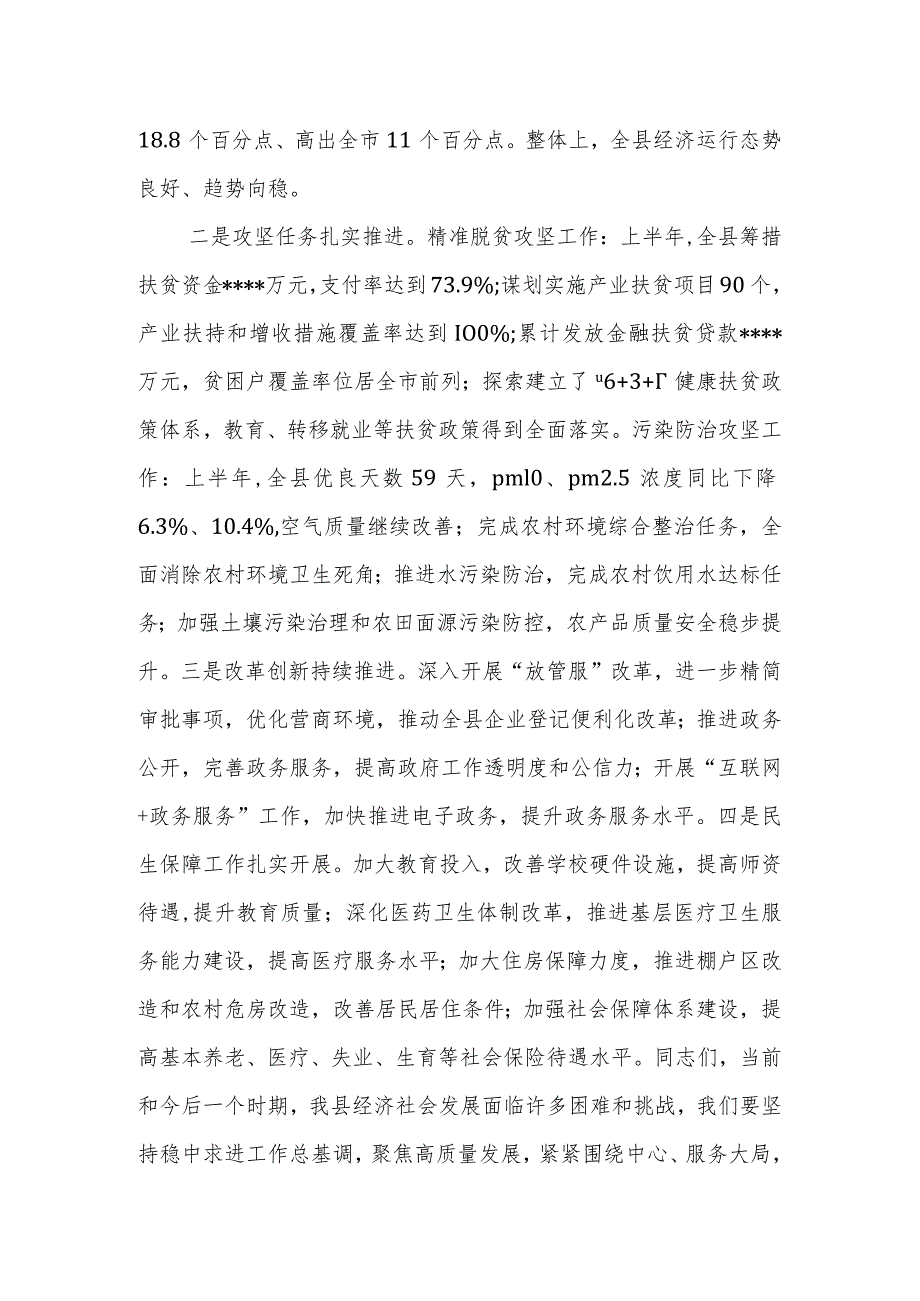 18.8 个百分点、高出全市 11 个百分点。整体上，全县经济运行态势
良好、趋势向稳。
二是攻坚任务扎实推进。精准脱贫攻坚工作：上半年,全县筹措
扶贫资金****万元,支付率达到 73.9%;谋划实施产业扶贫项目 90 个，
产业扶持和增收措施覆盖率达到 IO0%;累计发放金融扶贫贷款****
万元，贫困户覆盖率位居全市前列；探索建立了 ᶣ6+3+Г 健康扶贫政
策体系，教育、转移就业等扶贫政策得到全面落实。污染防治攻坚工
作：上半年,全县优良天数 59 天，pml0、pm2.5 浓度同比下降
6.3%、10.4%,空气质量继续改善；完成农村环境综合整治任务，全
面消除农村环境卫生死角；推进水污染防治，完成农村饮用水达标任
务；加强土壤污染治理和农田面源污染防控，农产品质量安全稳步提
升。三是改革创新持续推进。深入开展“放管服”改革，进一步精简
审批事项，优化营商环境，推动全县企业登记便利化改革；推进政务
公开，完善政务服务，提高政府工作透明度和公信力；开展“互联网
+政务服务”工作，加快推进电子政务，提升政务服务水平。四是民
生保障工作扎实开展。加大教育投入，改善学校硬件设施，提高师资
待遇,提升教育质量；深化医药卫生体制改革，推进基层医疗卫生服
务能力建设，提高医疗服务水平；加大住房保障力度，推进棚户区改
造和农村危房改造，改善居民居住条件；加强社会保障体系建设，提
高基本养老、医疗、失业、生育等社会保险待遇水平。同志们，当前
和今后一个时期，我县经济社会发展面临许多困难和挑战，我们要坚
持稳中求进工作总基调，聚焦高质量发展，紧紧围绕中心、服务大局，